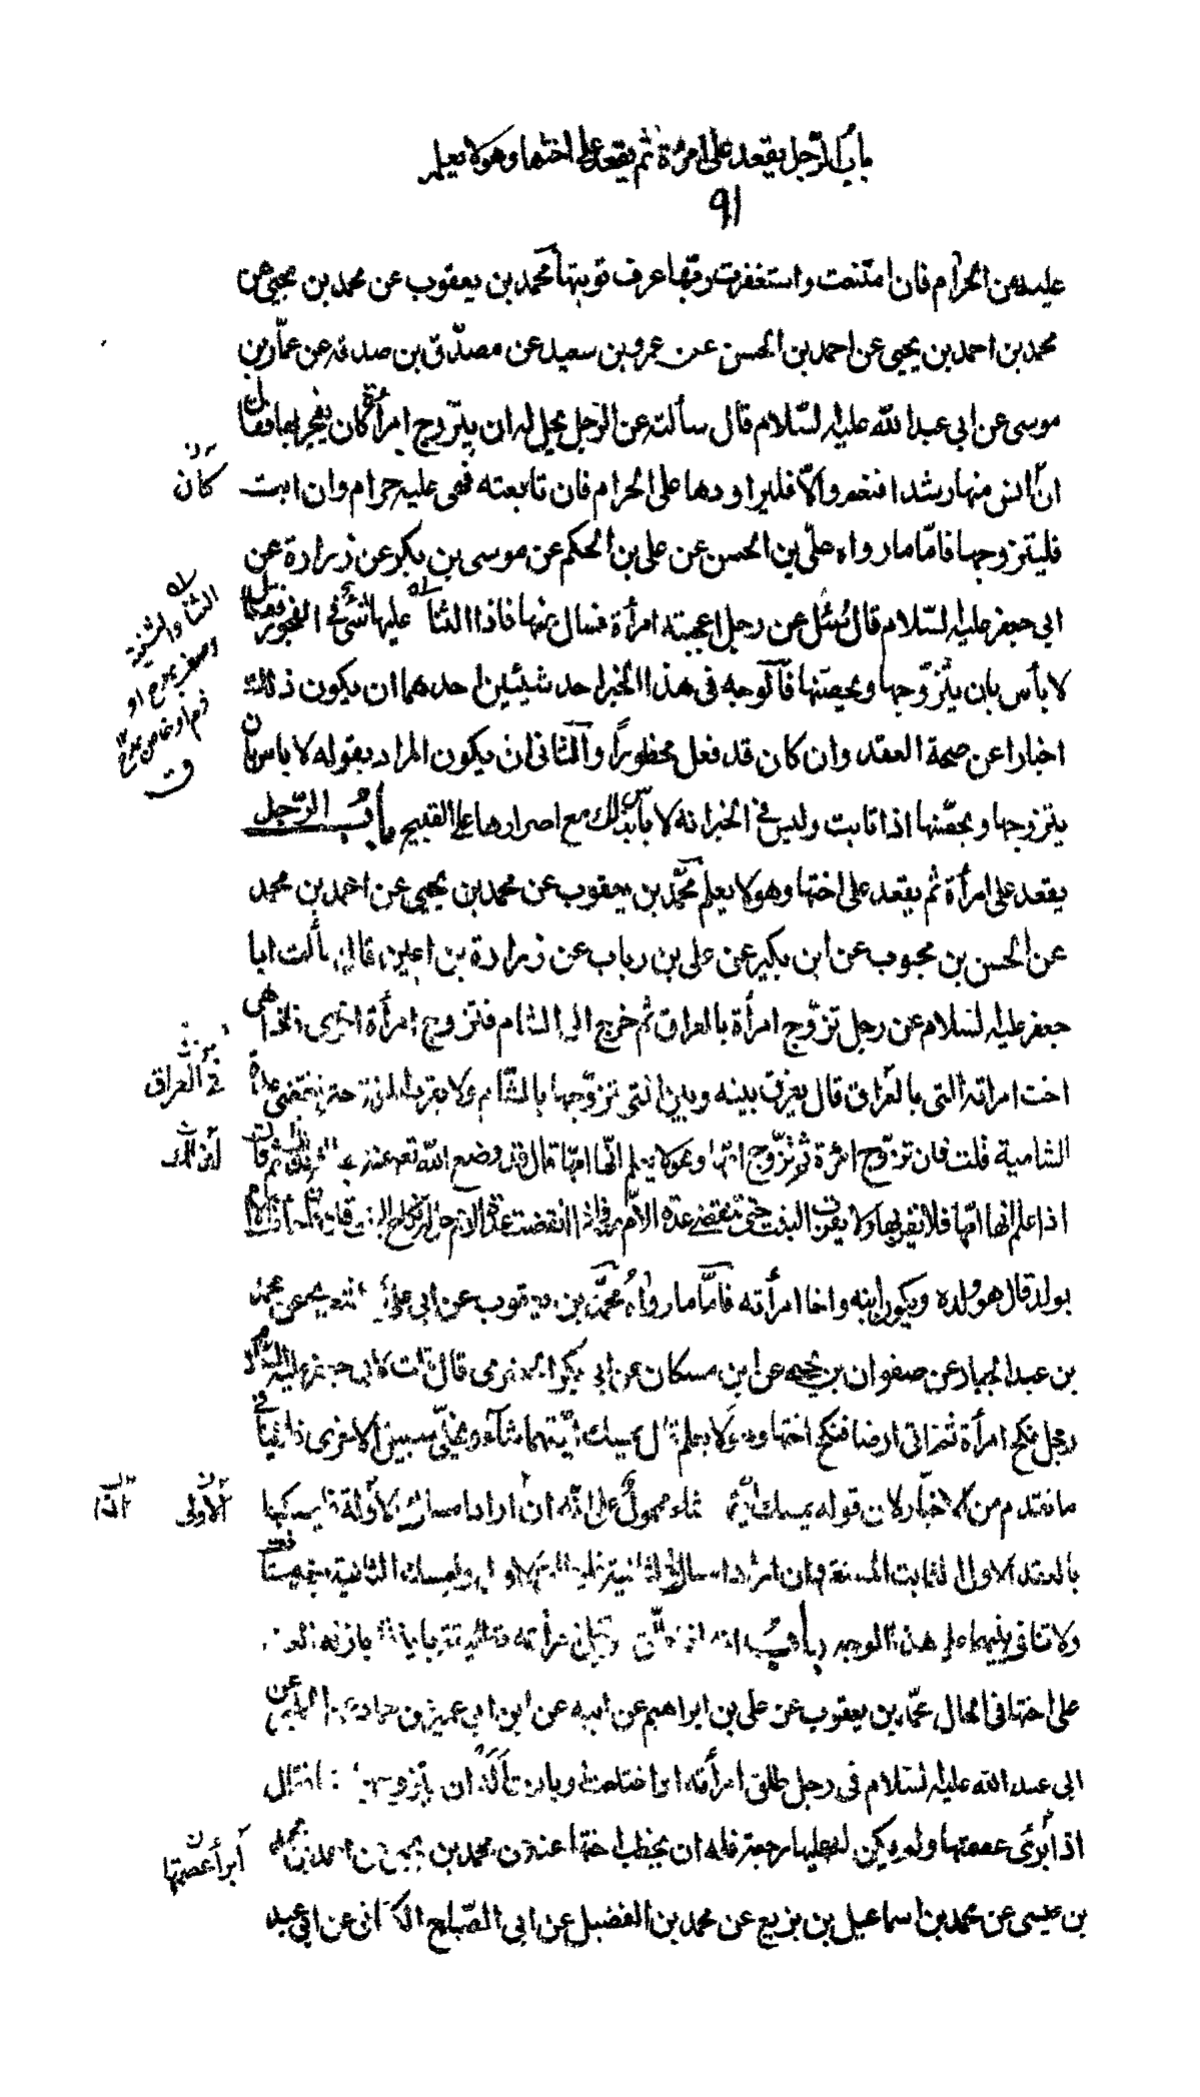 باب الرّجل يقعد على امرأة ثم يقعد على اختها وهو لا يعلم
٩١
عليه من الحرام فان امتنعت واستغفرت ربّها عرف توبتها محمد بن يعقوب عن محمد بن يحيى عن
محمد بن احمد بن يحيى عن احمد بن الحسن عن عمرو بن سعيد عن مصدّق بن صدقه عن عمّار بن
موسى عن ابي عبد الله عليه السّلام قال سألته عن الرجل يحل له ان يتزوج امرأة كان يفجر بها فقال
ان آنس منها رشدا فنعم والّا فليراودها على الحرام فان تابعته فهى عليه حرام وان ابت
كان
فليتزوجها فامّا ما رواه علىّ بن الحسن عن على بن الحكم عن موسى بن بكر عن زرارة عن
ابي جعفر عليه السّلام قال سُئل عن رجل اعجبته امرأة فسال عنها فاذا الثنا عليها شئ في الفجور فقال
لا بأس بان يتزوّجها ويحصنها فالوجه فى هذا الخبر احد شيئين احدهما ان يكون ذلك
اخبارا عن صحة العقد وان كان قد فعل محظوراً والثانى ان يكون المراد بقوله لا باس ان
يتزوجها ويحصّنها اذا تابت وليس في الخبر انه لا بأس بذلك مع اصرارها على القبيح باب الرّجل
يقعد على امرأة ثم يقعد على اختها وهو لا يعلم محمّد بن يعقوب عن محمد بن يحيى عن احمد بن محمد
عن الحسن بن محبوب عن ابن بكير عن على بن رباب عن زرارة بن اعين قال سألت ابا
جعفر عليه السلام عن رجل تزوّج امرأة بالعراق ثم خرج الى الشام فتزوج امرأة اخرى فاذا هى
اخت امراته التى بالعراق قال يفرق بينه وبين التى تزوّجها بالشّام ولا يقرب المرأة حتى تنقضى عدة
في العراق
الشامية قلت فان تزوّج امرأة ثم تزوّج امّها وهو لا يعلم انّها امّها قال قد وضع الله عنه جهالته بذلك ثم قال
اذا علم انها امّها فلا يقربها ولا يقرب البنت حتى تنقضى عدة الأم منه فاذا انقضت عدة الام حل له نكاح البنت قلت فان جاءت الام
بولد قال هو ولده ويكون ابنه واخا امرأته فامّا ما رواه محمّد بن يعقوب عن ابى على الاشعرى عن محمد
بن عبد الجبار عن صفوان بن يحيى عن ابن مسكان عن ابي بكر الحضرمى قال قلت لابى جعفر عليه السّلام
رجل نكح امرأة ثم اتى ارضا فنكح اختها وهو لا يعلم قال يمسك ايّتهما شاء ويخلّى سبيل الاخرى فلا ينافى
ما تقدم من الاخبار لان قوله يمسك ايتهما شاء محمول على انّه ان اراد امساك الاولة فليمسكها
الأولى
بالعقد الاول الثابت
ولا تنافى بينهما على هذا الوجه باب
على اختها فى الحال محمّد بن يعقوب عن على بن ابراهيم عن ابيه عن ابن ابي عمير عن حماد عن الحلبى عن
ابى عبد الله عليه السّلام فى رجل طلق امرأته او اختلعت او بارت أله ان يتزوج باختها قال
اذا أبرئ عصمتها ولم يكن له عليها رجعة فله ان يخطب اختها عنه عن محمد بن يحيى عن احمد بن محمد
أبرأ عصمتها
بن عيسى عن محمد بن اسماعيل بن بزيع عن محمد بن الفضيل عن ابى الصّباح الكنانى عن ابى عبد